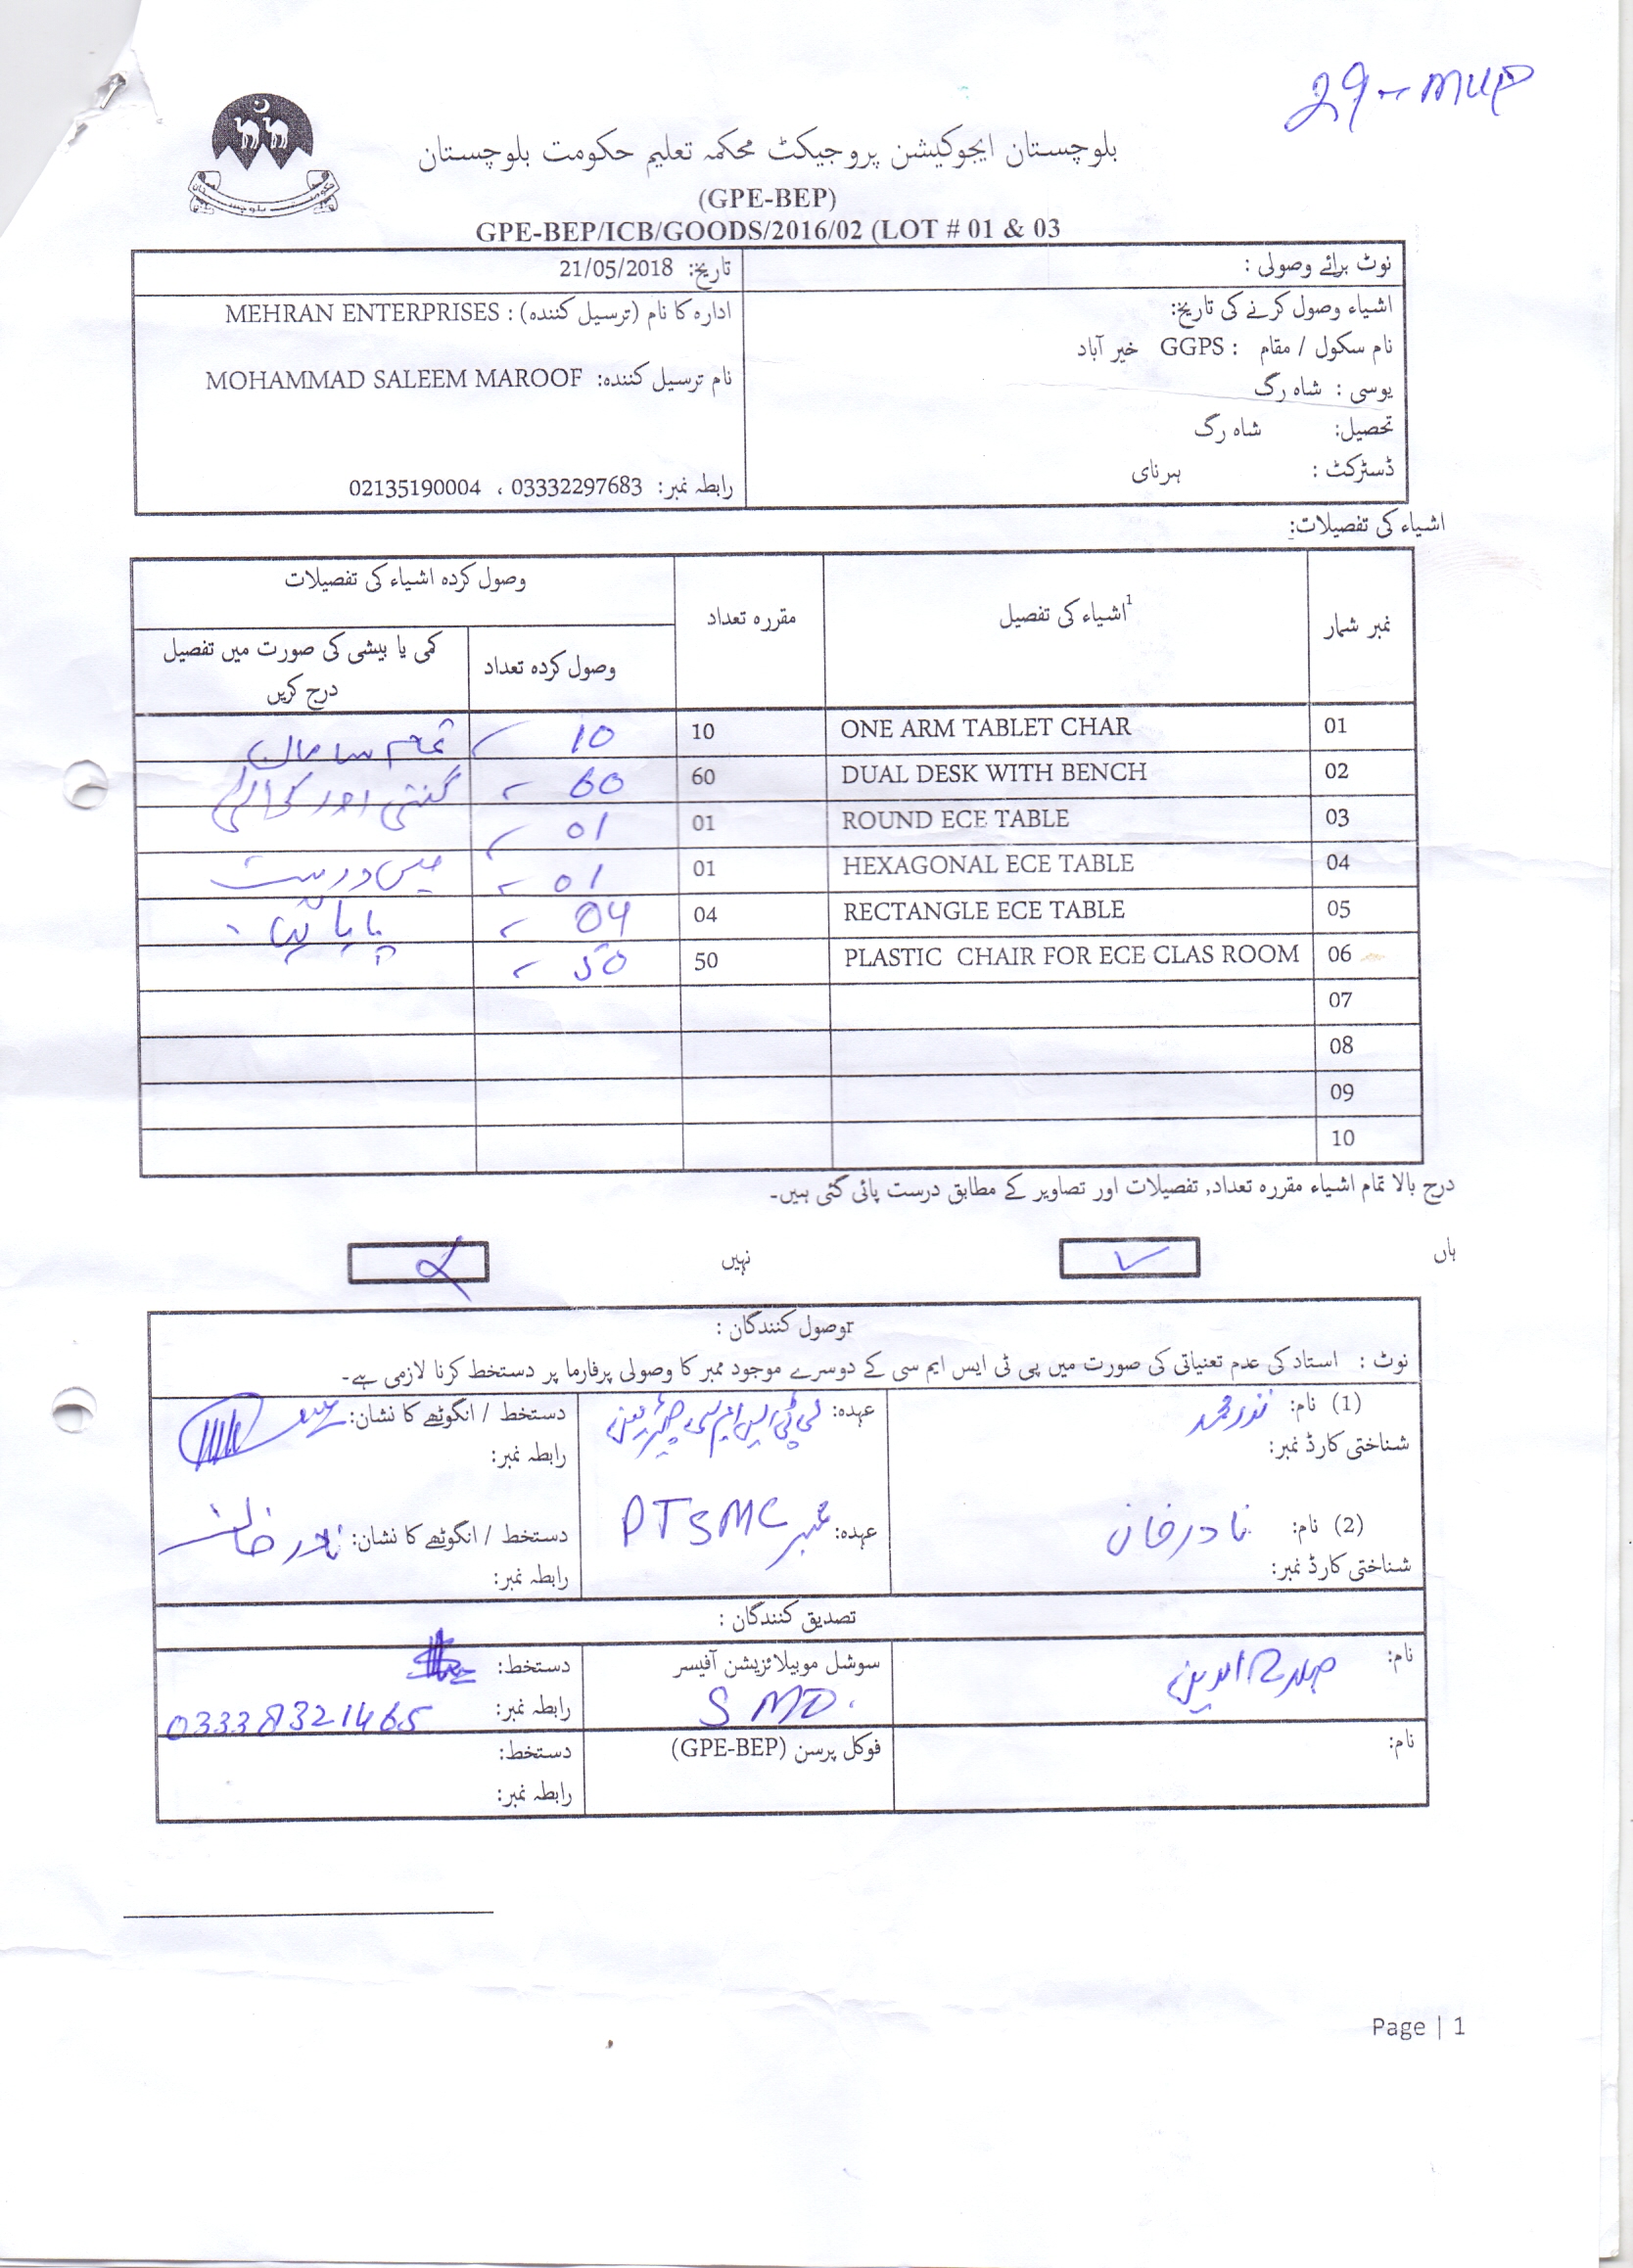 29 - MUP
بلوچستان ایجوکیشن پروجیکٹ محکمہ تعلیم حکومت بلوچستان
(GPE-BEP)
GPE-BEP/ICB/GOODS/2016/02 (LOT # 01 & 03
نوٹ برائے وصولی :
تاریخ: 21/05/2018
اشیاء وصول کرنے کی تاریخ:
نام سکول / مقام : GGPS خیر آباد
یوسی : شاہ رگ
تحصیل: شاہ رگ
ڈسٹرکٹ : ہرنای
ادارہ کا نام (ترسیل کنندہ) : MEHRAN ENTERPRISES
نام ترسیل کنندہ: MOHAMMAD SALEEM MAROOF
رابطہ نمبر: 03332297683 ، 02135190004
اشیاء کی تفصیلات:
نمبر شمار 1اشیاء کی تفصیل مقررہ تعداد وصول کردہ اشیاء کی تفصیلات
وصول کردہ تعداد کمی یا بیشی کی صورت میں تفصیل درج کریں
01 ONE ARM TABLET CHAR 10 10 تمام سامان
02 DUAL DESK WITH BENCH 60 60 گنتی اور
03 ROUND ECE TABLE 01 01
04 HEXAGONAL ECE TABLE 01 01 میں درست
05 RECTANGLE ECE TABLE 04 04 پایا گیا
06 PLASTIC CHAIR FOR ECE CLAS ROOM 50 50
07
08
09
10
درج بالا تمام اشیاء مقررہ تعداد, تفصیلات اور تصاویر کے مطابق درست پائی گئی ہیں۔
ہاں ✓ نہیں
rوصول کنندگان :
نوٹ : استاد کی عدم تعنیاتی کی صورت میں پی ٹی ایس ایم سی کے دوسرے موجود ممبر کا وصولی پرفارما پر دستخط کرنا لازمی ہے۔
(1) نام: نور محمد عہدہ: پی ٹی ایس ایم سی چیئرمین دستخط / انگوٹھے کا نشان:
شناختی کارڈ نمبر: رابطہ نمبر:
(2) نام: نادر خان عہدہ: ممبر PTSMC دستخط / انگوٹھے کا نشان: نادر خان
شناختی کارڈ نمبر: رابطہ نمبر:
تصدیق کنندگان :
نام: سوشل موبیلائزیشن آفیسر دستخط:
SMO. رابطہ نمبر: 03338321465
نام: فوکل پرسن (GPE-BEP) دستخط:
رابطہ نمبر:
Page | 1